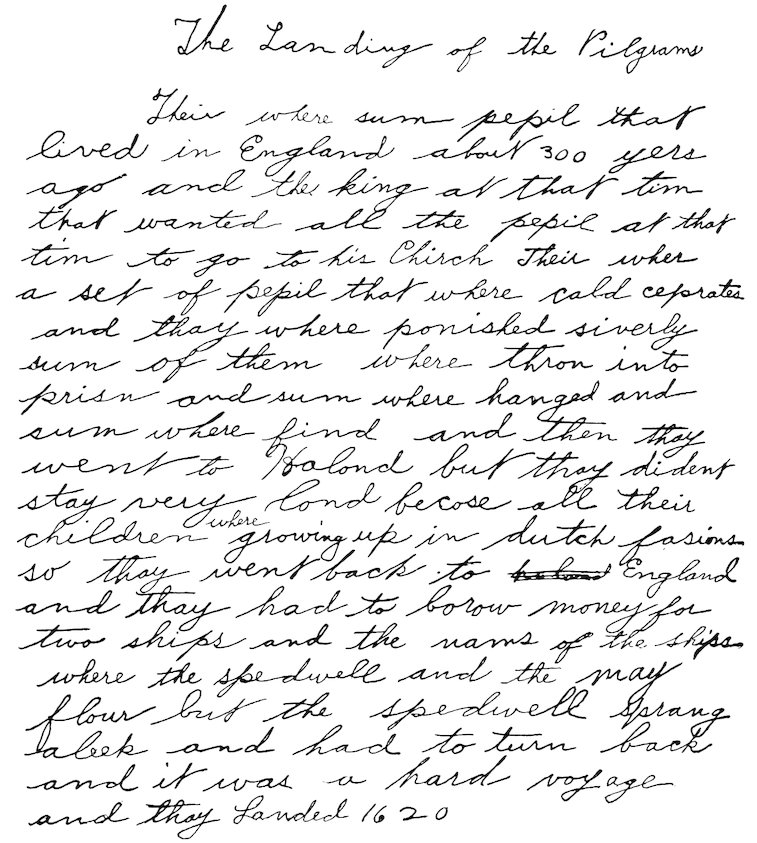 The Landing of the Pilgrams
Their where sum pepil that
lived in England about 300 yers
ago and the king at that tim
that wanted all the pepil at that
tim to go to his Chirch Their wher
a set of pepil that where cald ceprates
and thay where ponished siverly
sum of them where thron into
prisn and sum where hanged and
sum where find and then thay
went to Halond but thay dident
stay very lond becose all their
children where growing up in dutch fasions
so thay went back to England
and thay had to borow money for
two ships and the nams of the ships
where the spedwell and the may
flour but the spedwell sprang
aleek and had to turn back
and it was a hard voyage
and thay Landed 1620